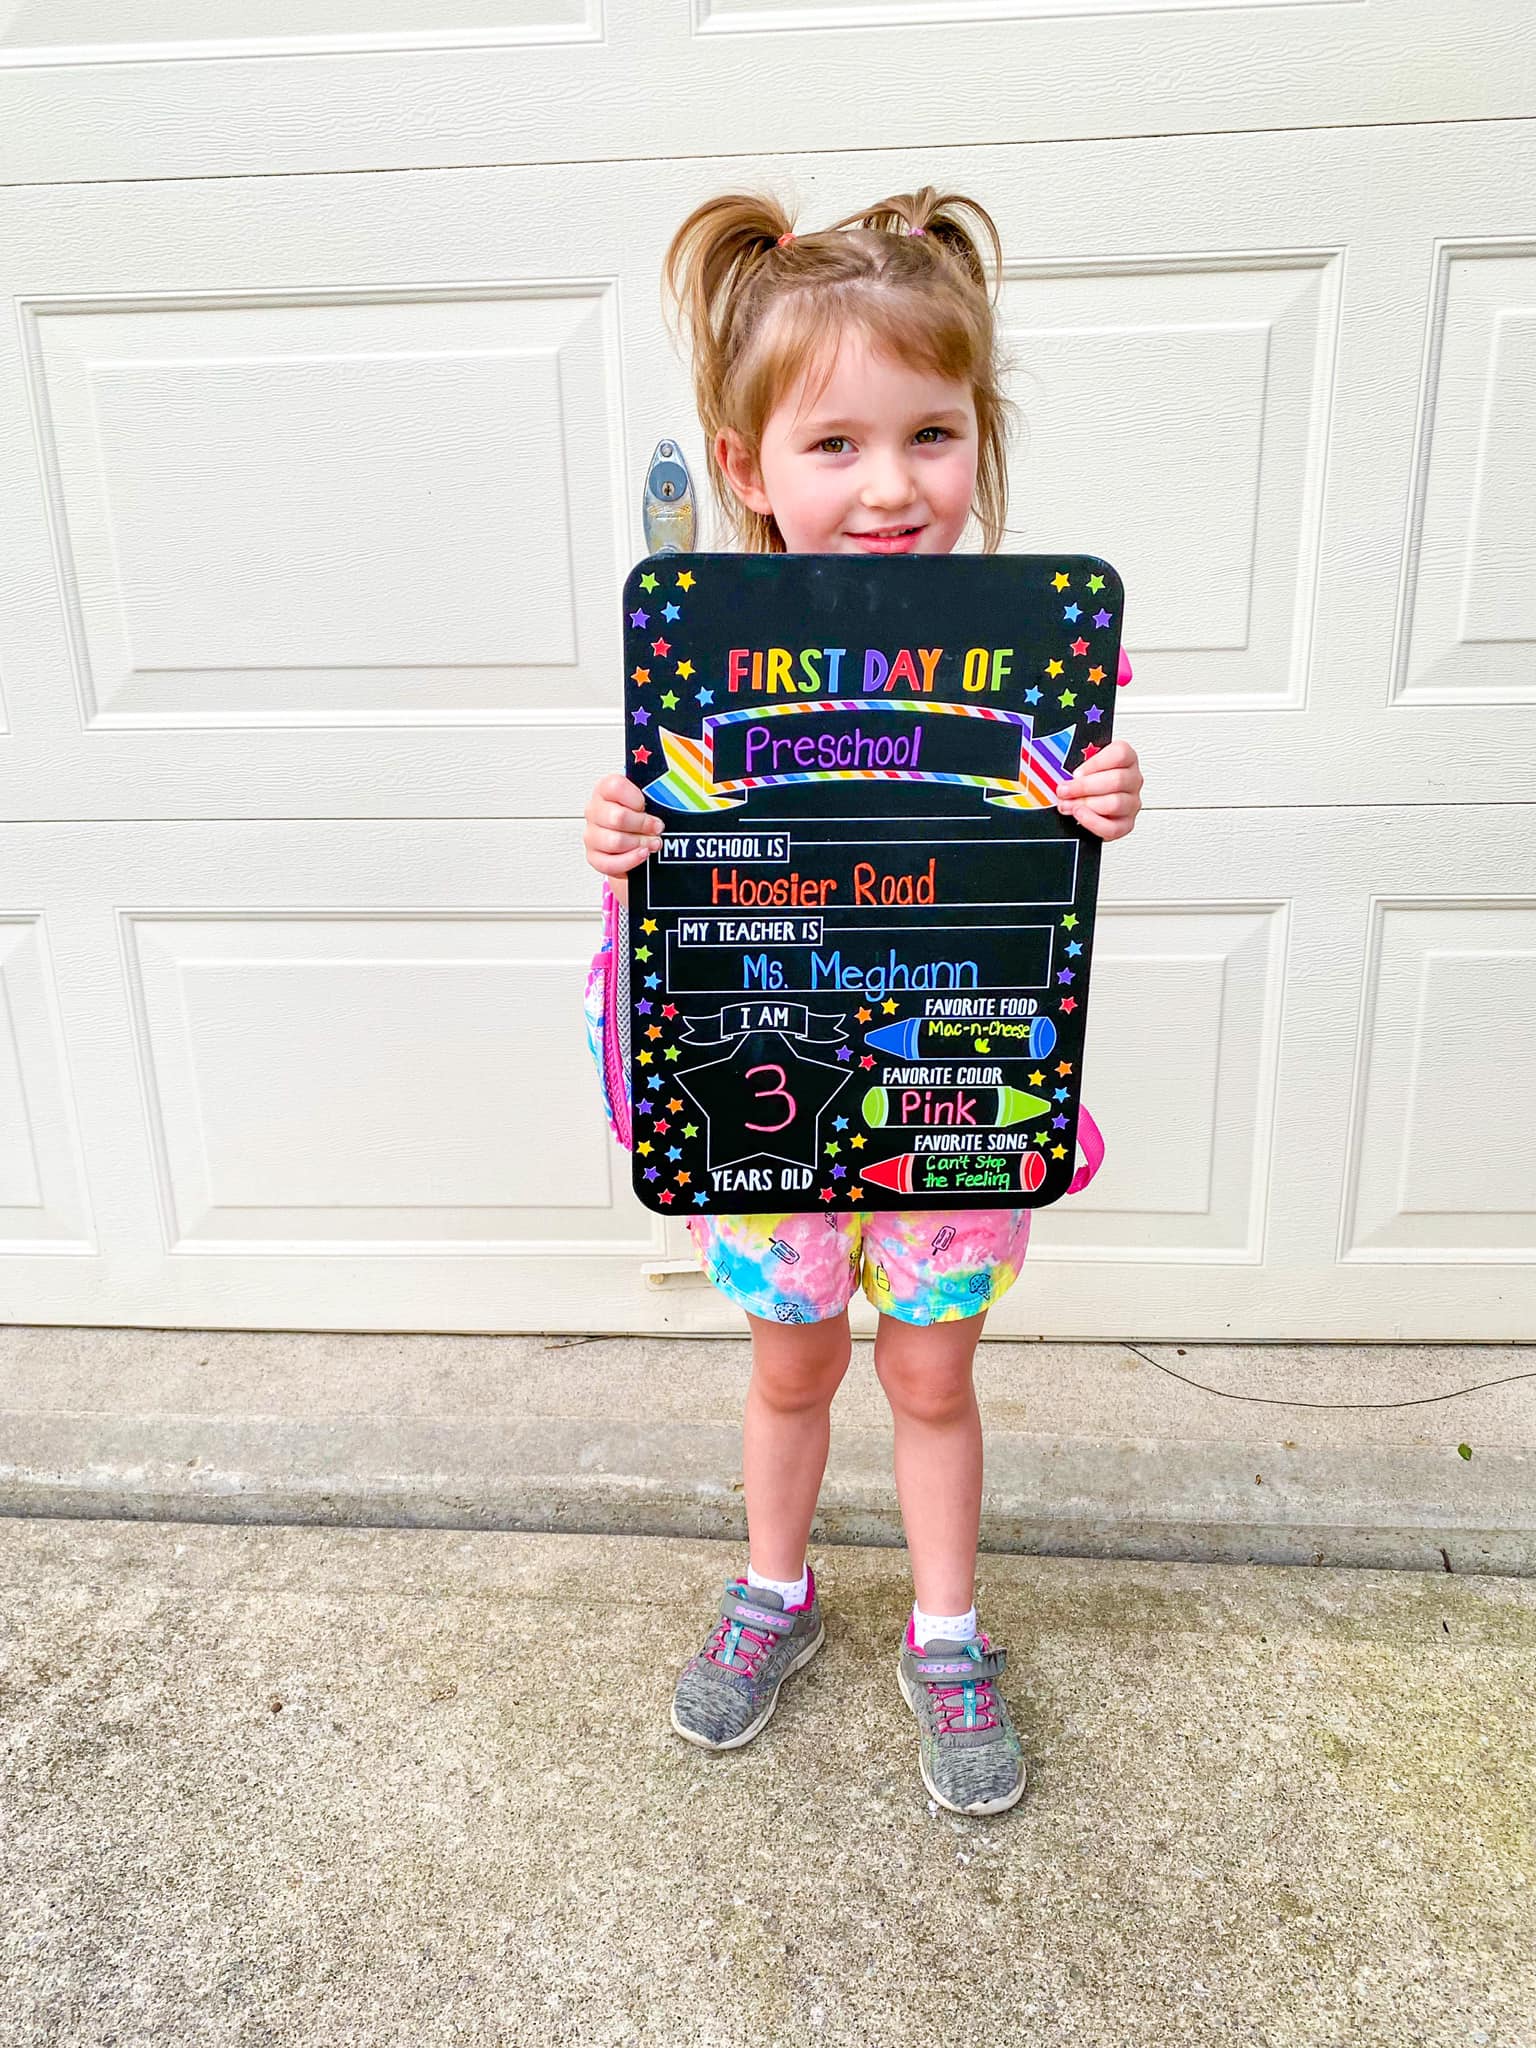 FIRST DAY OF
Preschool
MY SCHOOL IS
Hoosier Road
MY TEACHER IS
Ms. Meghann
I AM
3
YEARS OLD
FAVORITE FOOD
Mac-n-Cheese
FAVORITE COLOR
Pink
FAVORITE SONG
Can't Stop
the Feeling
SKECHERS
SKECHERS